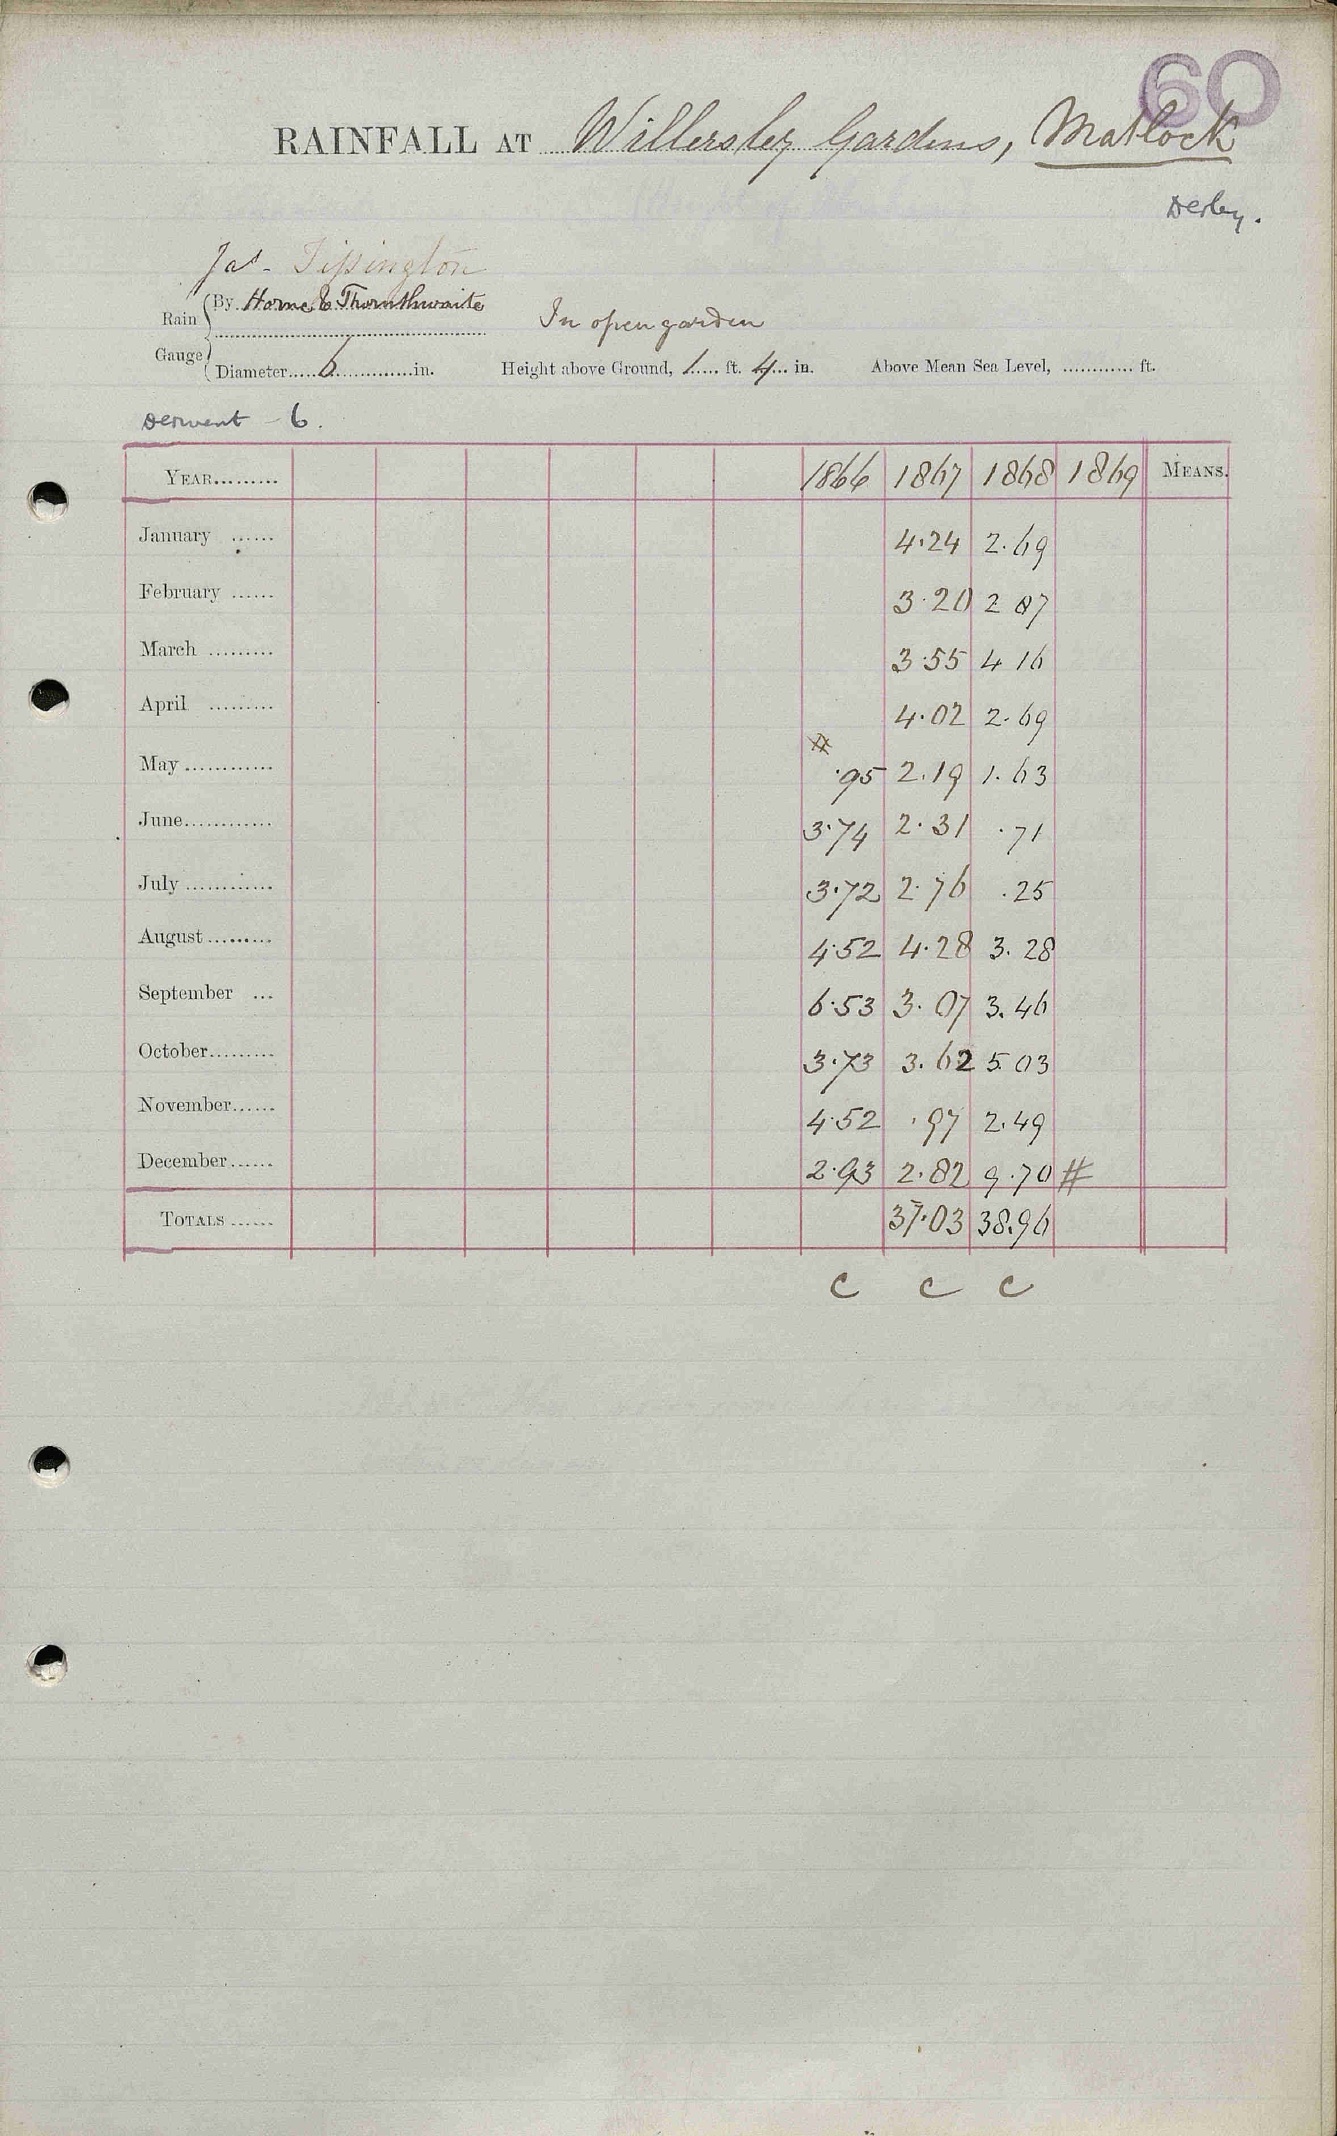 60
RAINFALL AT Willersley Gardens, Matlock
Derby.
Jas. Tissington
Rain Gauge By Horne & Thornthwaite
In open garden
Diameter 6 in. Height above Ground, 1 ft. 4 in. Above Mean Sea Level, ............ ft.
Derwent - 6.
YEAR......... 1866 1867 1868 1869 MEANS.
January ...... 4.24 2.69
February ...... 3.20 2 87
March ......... 3.55 4 16
April ......... 4.02 2.69
#
May ............ .95 2.19 1.63
June............ 3.74 2.31 .71
July ............ 3.72 2.76 .25
August ......... 4.52 4.28 3.28
September ... 6.53 3.07 3.46
October......... 3.73 3.62 5.03
November...... 4.52 .97 2.49
December ...... 2.93 2.82 9.70 #
TOTALS ...... 37.03 38.96
C C C